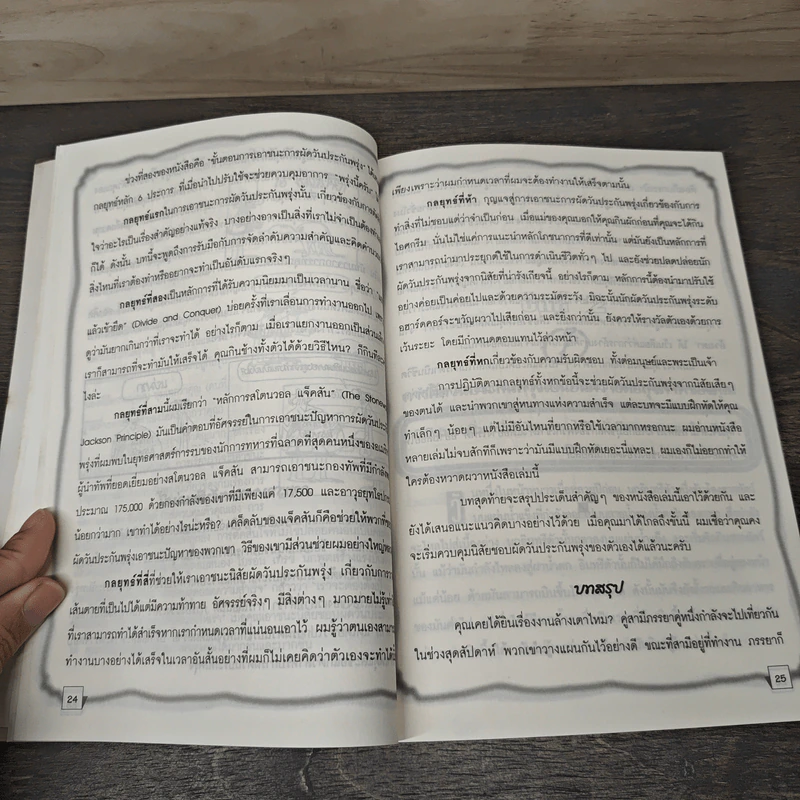 ช่วงที่สองของหนังสือคือ "ขั้นตอนการเอาชนะการผัดวันประกันพรุ่ง"
กลยุทธ์หลัก 6 ประการ ที่เมื่อนำไปปรับใช้จะช่วยควบคุมอาการ "พรุ่งนี้ครับ"
กลยุทธ์แรกในการเอาชนะการผัดวันประกันพรุ่งนั้น เกี่ยวข้องกับการ
ใจว่าอะไรเป็นเรื่องสำคัญอย่างแท้จริง บางอย่างอาจเป็นสิ่งที่เราไม่จำเป็นต้อง
ก็ได้ ดังนั้น บทนี้จะพูดถึงการรับมือกับการจัดลำดับความสำคัญและคิดคำนวณ
สิ่งไหนที่เราต้องทำหรืออยากจะทำเป็นอันดับแรกจริงๆ
กลยุทธ์ที่สองเป็นหลักการที่ได้รับความนิยมมาเป็นเวลานาน ชื่อว่า
แล้วเข้ายึด" (Divide and Conquer) บ่อยครั้งที่เราเลื่อนการทำงานออกไป
ดูว่ามันยากเกินกว่าที่เราจะทำได้ อย่างไรก็ตาม เมื่อเราแยกงานออกเป็นส่วน
เราก็สามารถที่จะทำมันให้เสร็จได้ คุณกินช้างทั้งตัวได้ด้วยวิธีไหน? ก็กินทีละ
ไงล่ะ
กลยุทธ์ที่สามนี้ผมเรียกว่า "หลักการสโตนวอล แจ็คสัน" (The Stonewall
Jackson Principle) มันเป็นคำตอบที่อัศจรรย์ในการเอาชนะปัญหาการผัดวันประกัน
พรุ่งที่ผมพบในยุทธศาสตร์การรบของนักการทหารที่ฉลาดที่สุดคนหนึ่งของ
ผู้นำทัพที่ยอดเยี่ยมอย่างสโตนวอล แจ็คสัน สามารถเอาชนะกองทัพที่มีกำลัง
ประมาณ 175,000 ด้วยกองกำลังของเขาที่มีเพียงแค่ 17,500 และอาวุธยุทโธปกรณ์
น้อยกว่ามาก เขาทำได้อย่างไรน่ะหรือ? เคล็ดลับของแจ็คสันก็คือช่วยให้พวกที่ชอบ
ผัดวันประกันพรุ่งเอาชนะปัญหาของพวกเขา วิธีของเขามีส่วนช่วยผมอย่างใหญ่หลวง
กลยุทธ์ที่สี่ที่ช่วยให้เราเอาชนะนิสัยผัดวันประกันพรุ่ง เกี่ยวกับการ
เส้นตายที่เป็นไปได้แต่มีความท้าทาย อัศจรรย์จริงๆ มีสิ่งต่างๆ มากมายไม่รู้
ที่เราสามารถทำได้สำเร็จหากเรากำหนดเวลาที่แน่นอนเอาไว้ ผมรู้ว่าตนเองสามารถ
ทำงานบางอย่างได้เสร็จในเวลาอันสั้นอย่างที่ผมก็ไม่เคยคิดว่าตัวเองจะทำได้
24
เพียงเพราะว่าผมกำหนดเวลาที่ผมจะต้องทำงานให้เสร็จตามนั้น
กลยุทธ์ที่ห้า กุญแจสู่การเอาชนะการผัดวันประกันพรุ่งเกี่ยวข้องกับการ
ทำสิ่งที่ไม่ชอบแต่ว่าจำเป็นก่อน เมื่อแม่ของคุณบอกให้คุณกินผักก่อนที่คุณจะได้กิน
ไอศกรีม นั่นไม่ใช่แค่การแนะนำหลักโภชนาการที่ดีเท่านั้น แต่มันยังเป็นหลักการที่
เราสามารถนำมาประยุกต์ใช้ในการดำเนินชีวิตทั่วๆ ไป และยังช่วยปลดปล่อยนัก
ผัดวันประกันพรุ่งจากนิสัยที่น่ารังเกียจนี้ อย่างไรก็ตาม หลักการนี้ต้องนำมาปรับใช้
อย่างค่อยเป็นค่อยไปและด้วยความระมัดระวัง มิฉะนั้นนักผัดวันประกันพรุ่งระดับ
ฮาร์ดคอร์จะขวัญผวาไปเสียก่อน และยิ่งกว่านั้น ยังควรให้รางวัลตัวเองด้วยการ
เว้นระยะ โดยมีกำหนดตอบแทนไว้ล่วงหน้า
กลยุทธ์ที่หกเกี่ยวข้องกับความรับผิดชอบ ทั้งต่อมนุษย์และพระเป็นเจ้า
การปฏิบัติตามกลยุทธ์ทั้งหกข้อนี้จะช่วยผัดวันประกันพรุ่งจากนิสัยเสียๆ
ของตนได้ และนำพวกเขาสู่หนทางแห่งความสำเร็จ แต่ละบทจะมีแบบฝึกหัดให้คุณ
ทำเล็กๆ น้อยๆ แต่ไม่มีอันไหนที่ยากหรือใช้เวลามากหรอกนะ ผมอ่านหนังสือ
หลายเล่มไม่จบสักทีก็เพราะว่ามันมีแบบฝึกหัดเยอะนี่แหละ! ผมเองก็ไม่อยากทำให้
ใครต้องหวาดผวาหนังสือเล่มนี้
บทสุดท้ายจะสรุปประเด็นสำคัญๆ ของหนังสือเล่มนี้เอาไว้ด้วยกัน และ
ยังได้เสนอแนะแนวคิดบางอย่างไว้ด้วย เมื่อคุณมาได้ไกลถึงขั้นนี้ ผมเชื่อว่าคุณคง
จะเริ่มควบคุมนิสัยชอบผัดวันประกันพรุ่งของตัวเองได้แล้วนะครับ
บทสรุป
คุณเคยได้ยินเรื่องงานล้างเตาไหม? คู่สามีภรรยาคู่หนึ่งกำลังจะไปเที่ยวกัน
ในช่วงสุดสัปดาห์ พวกเขาวางแผนกันไว้อย่างดี ขณะที่สามีอยู่ที่ทำงาน ภรรยาก็
25